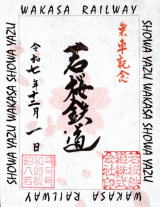 WAKASA RAILWAY
SHOWA YAZU WAKASA SHOWA YAZU
乗車記念
若桜鉄道
令和七年十二月一日
SHOWA YAZU WAKASA SHOWA YAZU
WAKASA RAILWAY